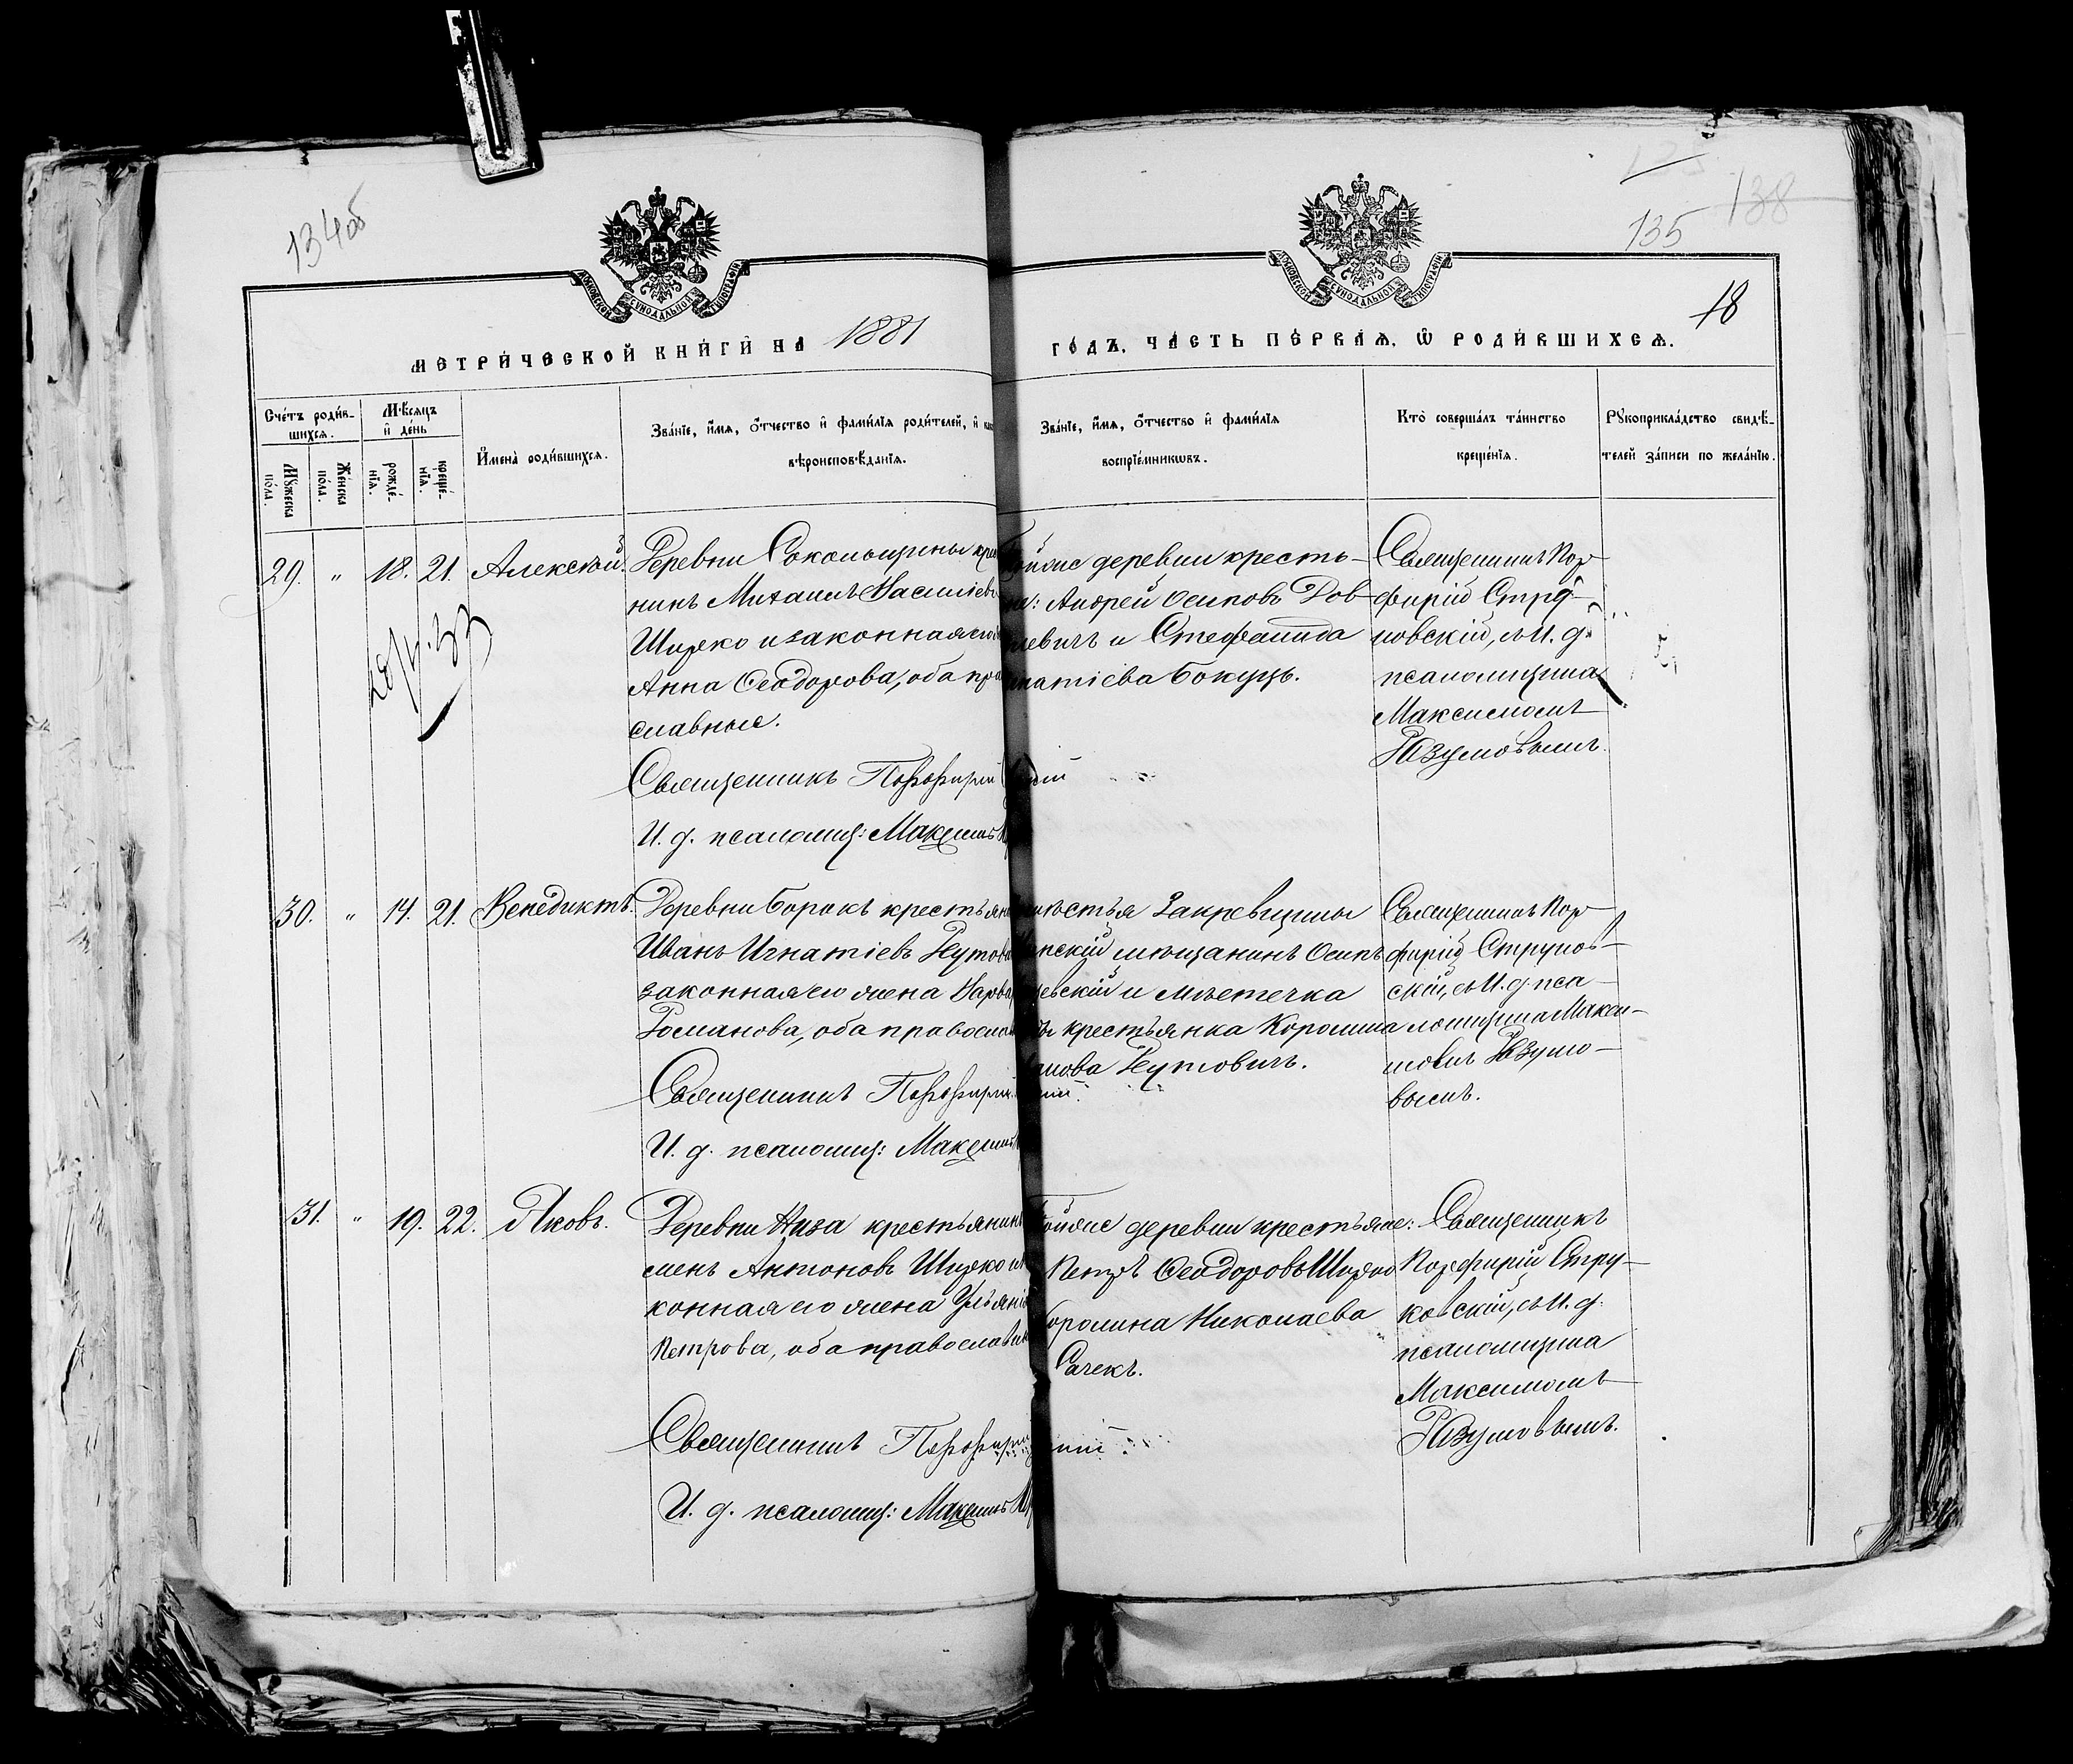 134об
135
138
18
МОСКОВСКОЙ СѴНОДАЛЬНОЙ ТИПОГРАФІИ
МОСКОВСКОЙ СѴНОДАЛЬНОЙ ТИПОГРАФІИ
МЕТРИ́ЧЕСКОЙ КНИ́ГИ НА 1881
ГО́ДЪ, ЧА́СТЬ ПЕ́РВАѦ, Ѡ РОДИ́ВШИХСѦ.
Сче́тъ роди́в-
шихсѧ.
Мꙋжеска
по́ла.
Же́нска
по́ла.
Мѣ́сѧцъ
и де́нь
рожде́-
нїѧ.
креще́-
нїѧ.
Имена̀ роди́вшихсѧ.
Зва́нїе, и́мѧ, о́тчество и фами́лїѧ роди́телей, и
вѣроисповѣ́данїѧ.
Зва́нїе, и́мѧ, о́тчество и фами́лїѧ
воспрїе́мникѡвъ.
Кто̀ соверша́лъ та́инство
креще́нїѧ.
Рꙋкоприкла́дство свидѣ́-
телей за́писи по жела́нїю.
29. " 18. 21. Алексѣй.
Деревни Сокольщины
никъ Михаилъ Василіевъ
Ширко и законная его
Анна Ѳеодорова, оба пра
славные.
Священникъ Порфирій
И. д. псаломщ: Максимъ
деревни кресть-
Андрей Осиповъ Дов-
левичъ и Стефанида
натіева Бокуць.
Священникъ Пор-
фирій Стру-
ковскій, съ И. д.
псаломщика
Максимомъ
Разумовымъ.
30. " 14. 21. Венедиктъ.
Деревни Борокъ крестьян
Иванъ Игнатіевъ Реутов
законная его жена Варва
Романова, оба правосла
Священникъ Порфирій
И. д. псаломщ: Максимъ
Закревщины
мѣщанинъ Осипъ
евскій и мѣстечка
крестьянка Королина
анова Реутовичъ.
Священникъ Пор-
фирій Струков-
скій, съ И. д. пса-
ломщика Макси-
момъ Разумо-
вымъ.
31. " 19. 22. Яковъ.
Деревни Низа крестьянинъ
менъ Антоновъ Ширко и
конная его жена Ульянія
Петрова, оба православн
Священникъ Порфирій
И. д. псаломщ: Максимъ
деревни крестьяне:
Петръ Ѳеодоровъ Ширко
Королина Николаева
Сачекъ.
Священникъ
Порфирій Стру-
ковскій, съ И. д.
псаломщика
Максимомъ
Разумовымъ.